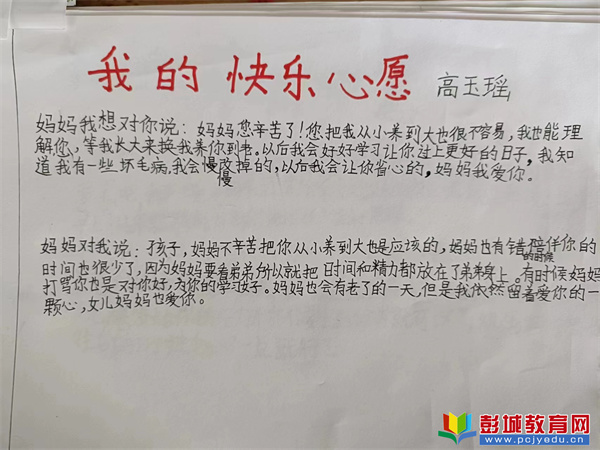 我的快乐心愿 高玉瑶
妈妈我想对你说：妈妈您辛苦了！您把我从小养到大也很不容易，我也能理
解你，等我长大来换我养你到老。以后我会好好学习让你过上更好的日子，我知
道我有一些坏毛病，我会慢改掉的，以后我会让你省心的，妈妈我爱你。
慢
妈妈对我说：孩子，妈妈不辛苦把你从小养到大也是应该的，妈妈也有错陪伴你的
时间也很少了，因为妈妈要看弟弟所以就把时间和精力都放在了弟弟身上。有时候妈妈
的时候
打骂你也是对你好，为你的学习好。妈妈也会有老了的一天，但是我依然留着爱你的一
颗心，女儿妈妈也爱你。
彭城教育网
www.pcjyedu.cn